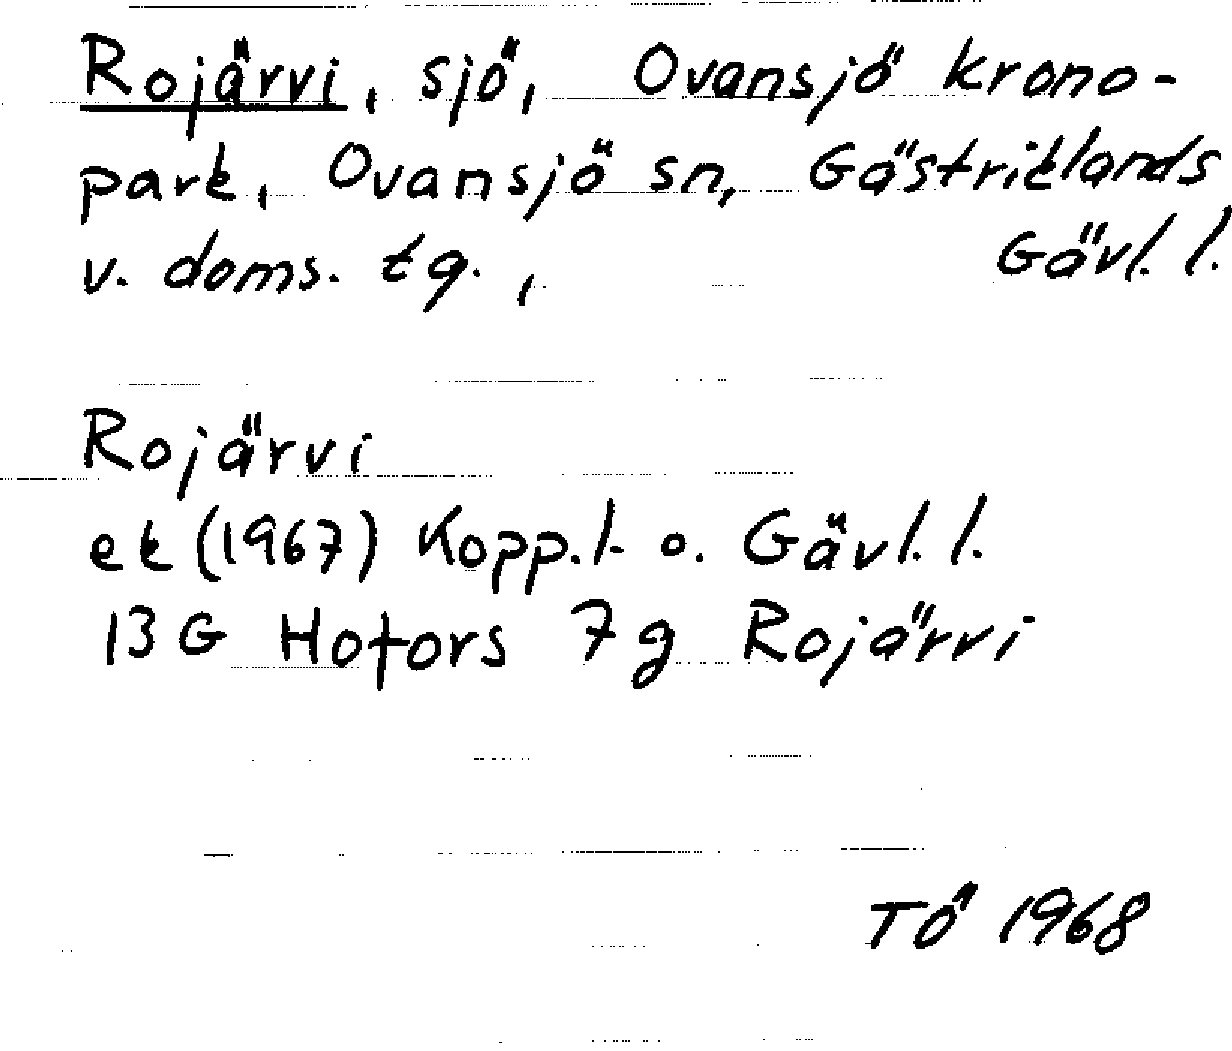 Rojärvi, sjö, Ovansjö krono-
park, Ovansjö sn, Gästriklands
v. doms. tg., Gävl. l.
Rojärvi
ek (1967) Kopp.l. o. Gävl. l.
13 G Hofors 7 g Rojärvi
TÖ 1968